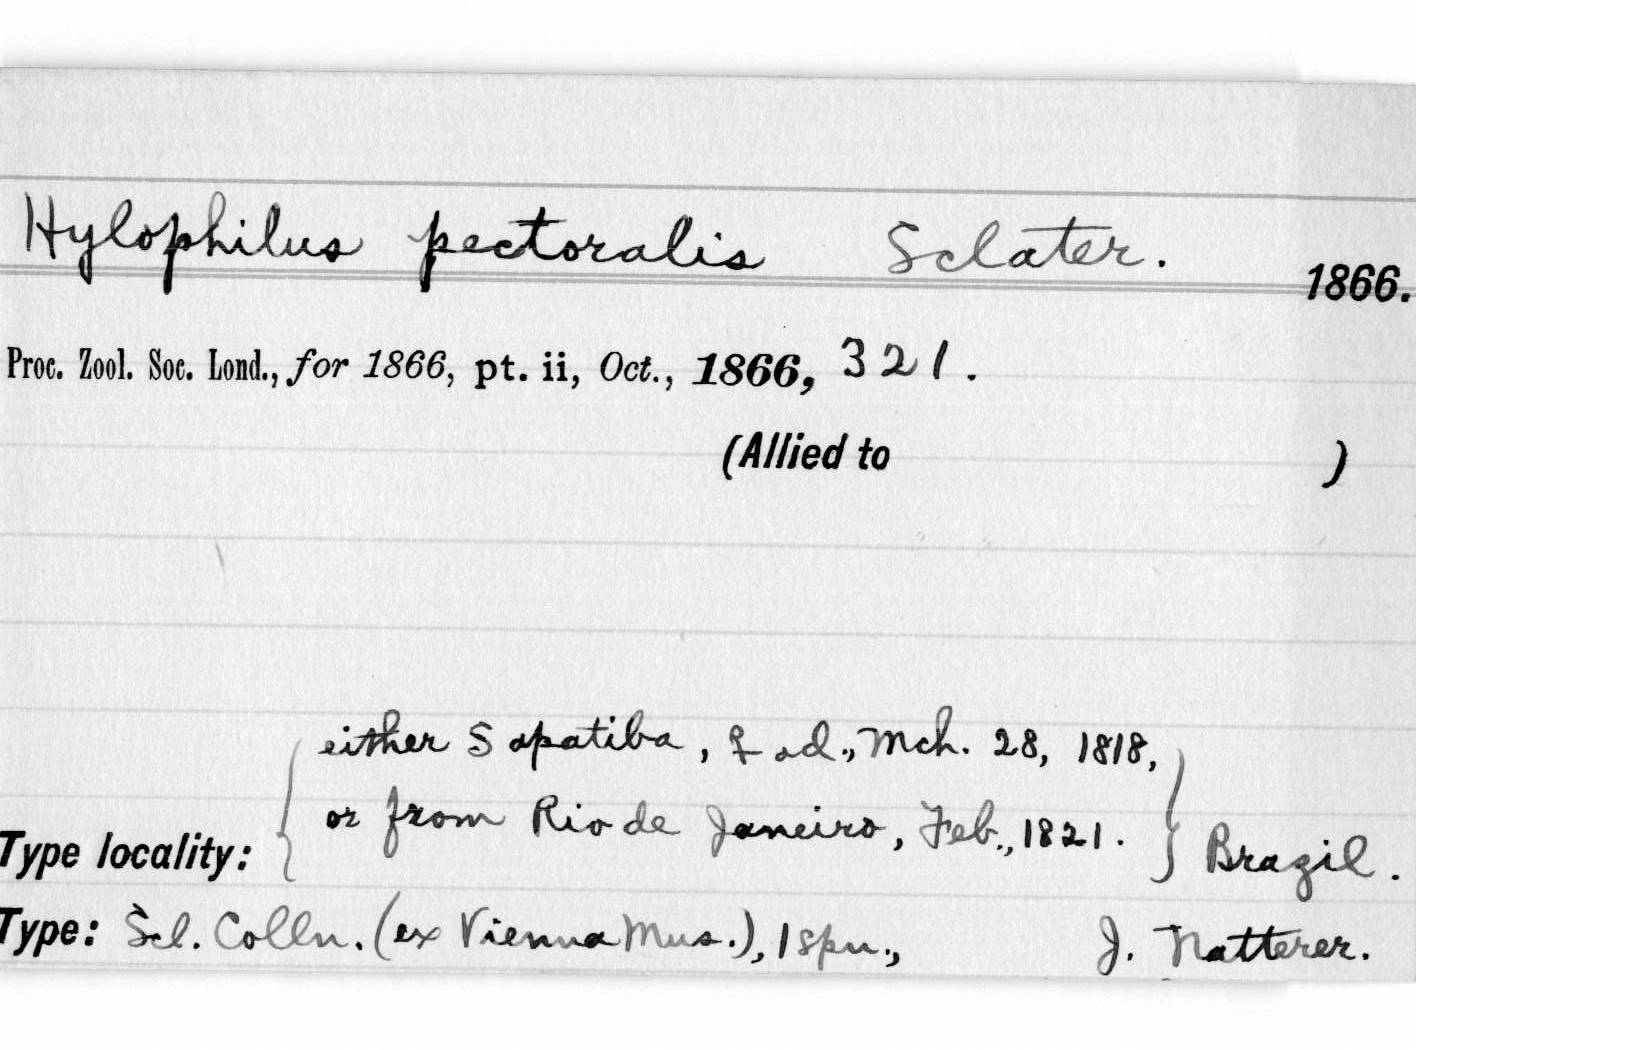 Hylophilus pectoralis Sclater. 1866.
Proc. Zool. Soc. Lond., for 1866, pt. ii, Oct., 1866, 321.
(Allied to )
either Sapatiba, ♀ ad., Mch. 28, 1818,
or from Rio de Janeiro, Feb., 1821.
Type locality: { } Brazil.
Type: Scl. Colln. (ex Vienna Mus.), 1 spn., J. Natterer.